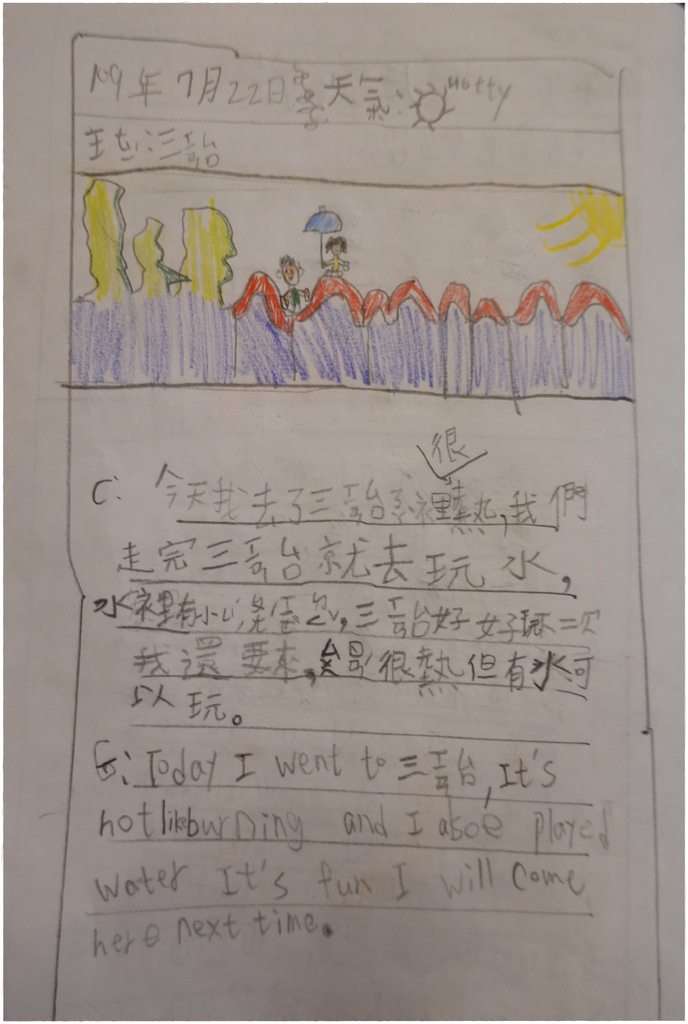 109年7月22日 天氣: Hotty
主:三哥台
很
C: 今天我去了三哥台 裡熱,我們
走完三哥台就去玩水,
水裡有小 三哥台好好玩 二次
我還要來, 很熱但有水可
以玩。
E: Today I went to 三哥台, It's
hot like burning and I alsoe played
water It's fun I will come
here next time.